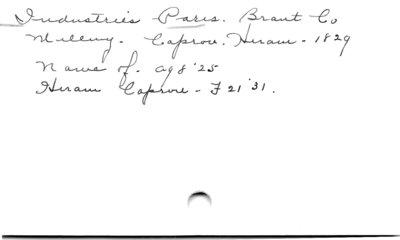 Industries Paris. Brant Co
Milling. Capron. Hiram - 1829
Name of. Ag 8 '25
Hiram Capron - F 21 '31.